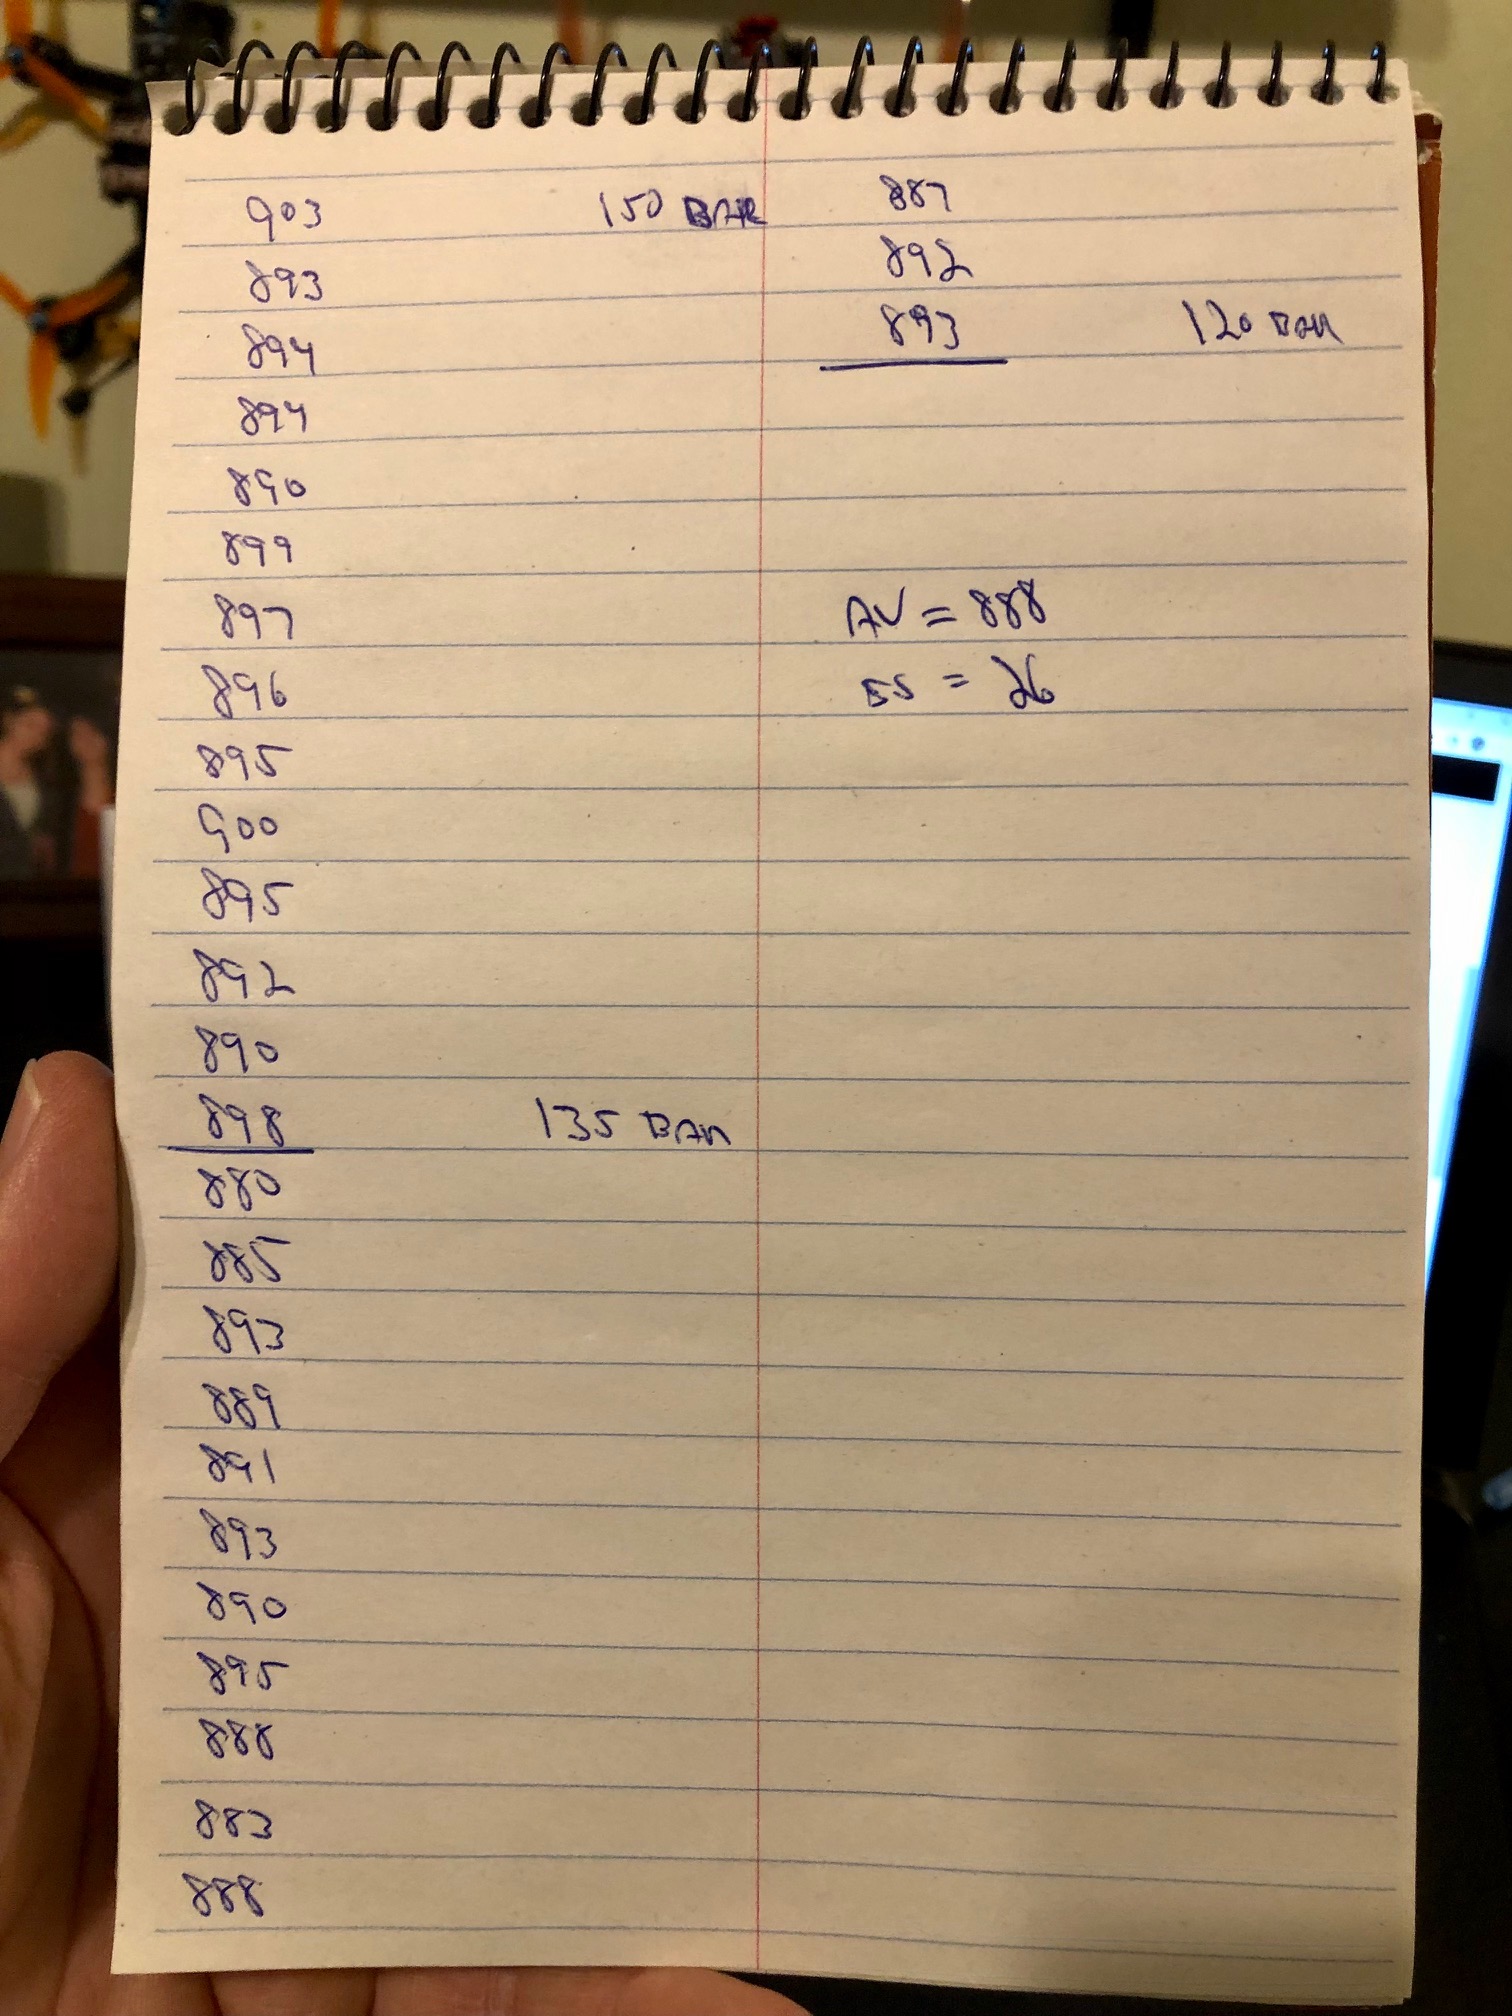 903 150 BAR
893
894
894
890
899
897
896
895
900
895
892
890
898 135 BAR
880
885
893
889
891
893
890
895
888
883
888
887
892
893 120 BAR
AV = 888
ES = 26